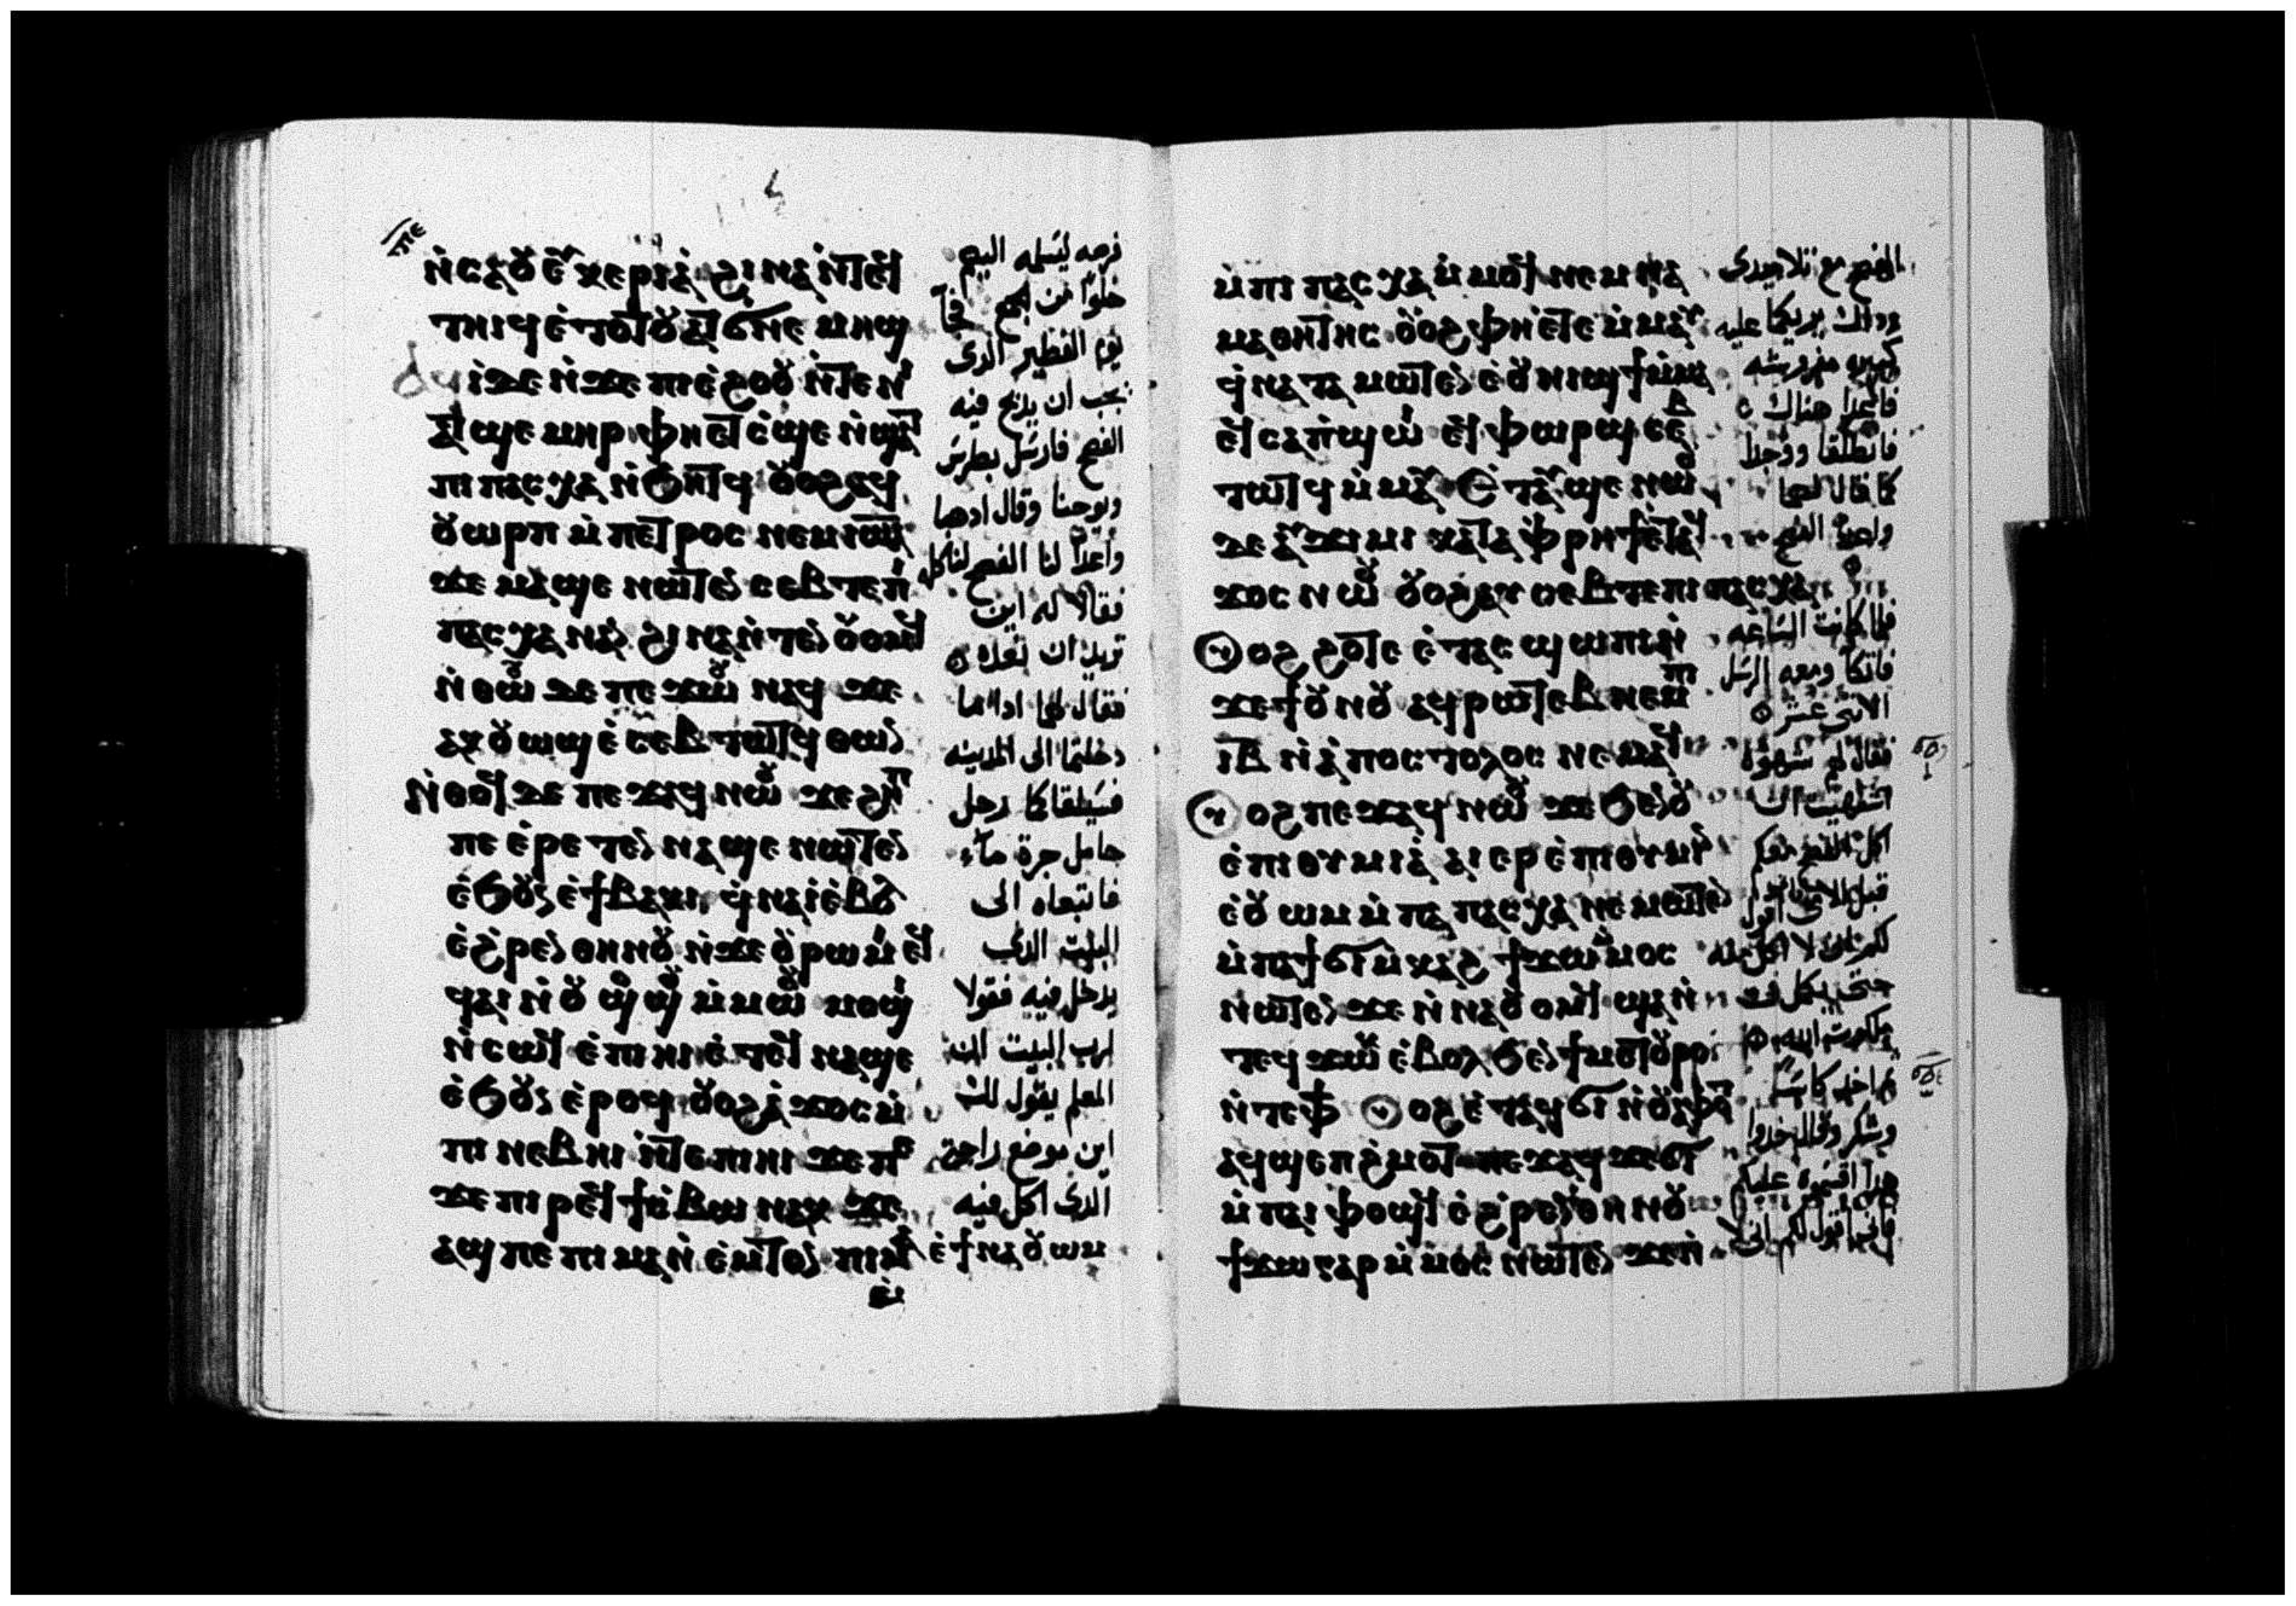 ⲡⲉ
ⲛ̇ⲥⲁⲟⲩⲉⲩⲕⲉⲣⲓⲁ̇ ϩⲓⲛⲁ ⲛ̇ⲧⲉϥ
ⲧⲏⲓϥ ⲉ̇ⲧⲟⲧⲟⲩ ⲁⲧϭⲛⲉ ⲙⲏϣ
ⲁϥⲓ̇ⲇⲉ ⲛ̇ϫⲉ ⲡⲓⲉ̇ϩⲟⲟⲩ ⲛ̇ⲧⲉⲛⲓ
ⲁⲧϣⲉⲙⲏⲣ ⲫⲏⲉⲧⲥ̇ϣⲉ ⲛ̇ϣⲁⲧ
ⲡⲓ ⲡⲁⲥⲭⲁ ⲛ̇ϧⲏⲧϥ ⲟⲩⲟϩ ⲁϥ
ⲟⲩⲱⲣⲡ ⲙ̇ⲡⲉⲧⲣⲟⲥ ⲛⲉⲙ ⲓⲱⲁ
ϫⲉ ⲙⲁϣⲉ ⲛⲱⲧⲉⲛ ⲥⲉⲃⲧⲉ ⲡⲓ
ⲡⲁⲥⲭⲁ ⲛⲁⲛ ϩⲓⲛⲁ ⲛ̇ⲧⲉⲛⲟⲩⲟⲙϥ
ⲛ̇ⲑⲱⲟⲩ ⲇⲉ ⲡⲉϫⲱⲟⲩ ⲛⲁϥ ϫⲉ
ⲁⲕⲟⲩⲱϣ ⲉ̇ⲥⲉⲃⲧⲱⲧϥ ⲑⲱⲛ
ⲛ̇ⲑⲟϥ ⲇⲉ ⲡⲉϫⲁϥ ⲛⲱⲟⲩ ϫⲉ ϩⲏⲡ
ⲡⲉ ⲉ̇ⲣⲉⲧⲉⲛ ⲛⲁϣⲉ ⲛⲱⲧⲉⲛ
ⲉ̇ϧⲟⲩⲛ ⲉ̇ϯⲃⲁⲕⲓ, ϥ̇ⲛⲁⲓ̇ ⲉ̇ⲃⲟⲗ
ⲉ̇ϩ̇ⲣⲉⲛ ⲑⲏⲛⲟⲩ ⲛ̇ϫⲉ ⲟⲩⲣⲱⲙⲓ ⲉϥ
ϥⲁⲓ ⲛ̇ⲟⲩϣⲟϣⲟⲩ ⲙ̇ⲙⲱⲟⲩ ⲙⲟϣⲓ
ⲛ̇ⲥⲱϥ ⲉ̇ⲡⲓⲏⲓ ⲉ̇ⲧⲉϥ ⲛⲁϣⲉ
ⲉ̇ϧⲟⲩⲛ ⲉ̇ⲣⲟϥ ⲟⲩⲟϩ ⲁ̇ϫⲟⲥ ⲙ̇
ⲡⲓ ⲛⲉⲃⲏⲓ ⲛ̇ⲧⲉⲡⲓⲏⲓ ϫⲉ ⲡⲉ
ϫⲉ ⲡⲓ ⲣⲉϥϯⲥ̇ⲃⲱ ⲛⲁⲕ ϫⲉ
ⲁϣ ⲡⲉ ⲡⲓ ⲙⲁⲛ̇ⲉ̇ⲙⲧⲟⲛ ⲡⲓⲙⲁ ⲉ̇ϯⲛⲁⲟⲩⲱⲙ
فرصه ليسلمه اليهم
خلوا من الجمع فجا
يوم الفطير الذى
يجب ان يذبح فيه
الفصح فارسل بطرس
ويوحنا وقال اذهبا
واعدا لنا الفصح لناكله
فقالا له اين
تريد ان نعده
فقال لهما اذا انتما
دخلتما الى المدينه
فسيلقاكما رجل
حامل جرة مآء
فاتبعاه الى
البيت الذى
يدخل فيه فقولا
لرب البيت ان
المعلم يقول لك
اين موضع راحتى
الذى اكل فيه
ⲙ̇ⲡⲓ ⲡⲁⲥⲭⲁ ⲙ̇ⲙⲟϥ ⲛⲉⲙ ⲛⲁ
ⲙⲁⲑⲏⲧⲏⲥ ⲟⲩⲟϩ ⲫⲏⲉⲧⲉ ⲙ̇ⲙⲁⲩ
ϥ̇ⲛⲁⲧⲁⲙⲱⲧⲉⲛ ⲉ̇ⲟⲩⲛⲓϣϯ ⲙ̇ⲙⲁ
ⲉϥⲥⲁⲡ̇ϣⲱⲓ ⲉϥⲫⲱⲣϣ ⲥⲉⲃ
ⲧⲱⲧϥ ⲙ̇ⲙⲁⲩ ⲉ̇ⲧⲁⲩϣⲉ ⲛⲱⲟⲩ
ⲇⲉ ⲁⲩϫⲓⲙⲓ ⲕⲁⲧⲁ ⲫ̇ⲣⲏϯ ⲉ̇ⲧⲁϥ
ϫⲟⲥ ⲛⲱⲟⲩ ⲟⲩⲟϩ ⲁⲩⲥⲉⲃⲧⲉ ⲡⲓ ⲡⲁⲥⲭⲁ
ⲟⲩⲟϩ ϩⲟⲧⲉ ⲉ̇ⲧⲁⲥϣⲱⲡⲓ ⲛ̇
ϫⲉ ϯⲟⲩⲛⲟⲩ ⲁϥⲣⲱⲧⲉⲃ ⲛⲉⲙ ⲡⲓ
ⲓⲃ ⲛ̇ⲁ̇ⲡⲟⲥⲧⲟⲗⲟⲥ ⲛⲉⲙⲁϥ
ⲟⲩⲟϩ ⲡⲉϫⲁϥ ⲛⲱⲟⲩ ϫⲉ ϧⲉⲛ ⲟⲩ
ⲉ̇ⲡⲓⲑⲩⲙⲓⲁ̇ ⲁⲓⲉⲣⲉ̇ⲡⲓⲑⲩⲙⲓⲛ
ⲉ̇ⲟⲩⲱⲙ ⲙ̇ⲡⲁⲓ ⲡⲁⲥⲭⲁ ⲛⲉⲙⲱⲧⲉⲛ
ⲙ̇ⲡⲁϯϭⲓ ⲙ̇ⲕⲁϩ ϯϫⲱ ⲙ̇ⲙⲟⲥ
ⲛⲱⲧⲉⲛ ϫⲉ ⲛ̇ⲛⲁⲟⲩⲟⲙϥ ϣⲁⲛ̇
ⲧⲉϥ ϫⲱⲕ ⲉ̇ⲃⲟⲗ ϧⲉⲛ ϯⲙⲉⲧⲟⲩⲣⲟ
ⲛ̇ⲧⲉⲫϯ ⲟⲩⲟϩ ⲉ̇ⲧⲁϥϭⲓ ⲛ̇ⲟⲩⲁ̇ⲫⲟⲧ
ⲁϥϣⲉⲡϩ̇ⲙⲟⲧ ⲡⲉϫⲁϥ ϫⲉ ϭⲓ
ⲙ̇ⲫⲁⲓ ⲫⲟϣϥ ⲉ̇ϩ̇ⲣⲉⲛ ⲑⲏⲛⲟⲩ
ϯϫⲱ ⲅⲁⲣ ⲙ̇ⲙⲟⲥ ⲛⲱⲧⲉⲛ ϫⲉ ⲛ̇
الفصح مع تلاميذى
وذاك يريكما عليه
كبيره مفروشه
فاعدا هناك
فانطلقا ووجدا
كما قال لهما
واعدا الفصح
فلما كانت الساعه
فاتكا ومعه الرسل
الاثنى عشر
فقال لهم شهوة
اشتهيت ان
اكل الفصح معكم
قبل
لكم انى لا اكل منه
حتى يكمل فى
ملكوت الله
ثم اخذ كاسا
وشكر وقال خذوا
هذا اقتسموه عليكم
فانى اقول لكم انى لا